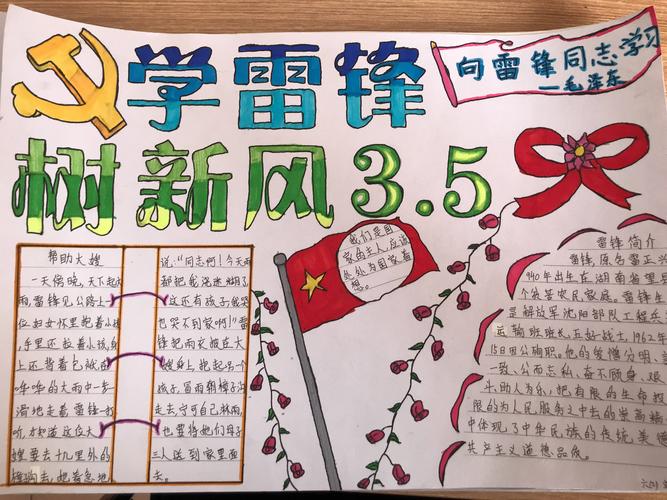 学雷锋
向雷锋同志学习
—毛泽东
树新风3.5
帮助大嫂
一天傍晚，天下起大
雨，雷锋见公路上
位妇女怀里抱着小孩
手里还拉着小孩，身
上还背着包袱，在
哗哗的大雨中一步
滑地走着雷锋一打
听，才知道这位大
嫂要去十几里外的
樟子沟去，她着急地
说：“同志啊！今天雨
都把我浇迷糊了
这还有孩子，我哭
也哭不到家啊！”雷
锋把雨衣披在大
嫂身上，抱起另一个
孩子，冒雨朝樟子沟
走去，宁可自己淋雨，
也要将她们母子
三人送到家里面
去。
我们是国
家的主人，应该
处处为国家着
想。
雷锋简介
雷锋，原名雷正兴
1940年出生在湖南省望
个贫苦农民家庭。雷锋生
是解放军沈阳部队工程兵
运输班班长，五好战士，1962年
15日因公殉职。他的爱憎分明、
一致、公而忘私、奋不顾身、艰
斗、助人为乐，把有限的生命投
限的为人民服务之中去的崇高精
中体现了中华民族的传统美德
共产主义道德品质。